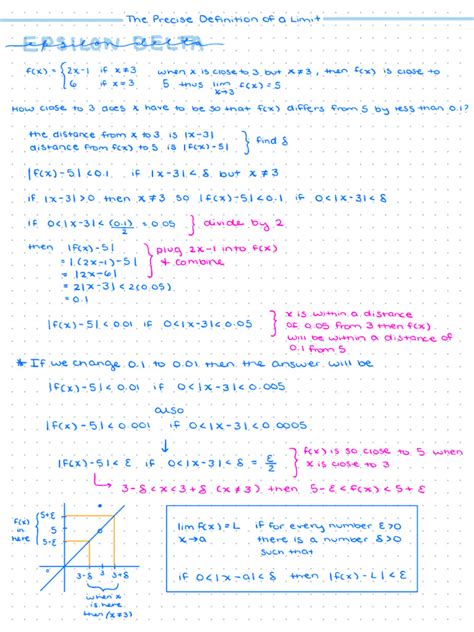 The Precise Definition of a Limit
EPSILON DELTA
epsilon delta
f(x) = { 2x-1 if x≠3
6 if x=3
when x is close to 3 but x≠3, then f(x) is close to
5 thus lim x→3 f(x) = 5
How close to 3 does x have to be so that f(x) differs from 5 by less than 0.1?
the distance from x to 3 is |x-3|
distance from f(x) to 5 is |f(x)-5|
} find δ
|f(x)-5| < 0.1 if |x-3| < δ but x≠3
if |x-3| > 0 then x≠3 so |f(x)-5| < 0.1 if 0<|x-3|<δ
if 0<|x-3| < (0.1)/2 = 0.05 } divide by 2
then |f(x)-5|
= |(2x-1)-5|
= |2x-6|
= 2|x-3| < 2(0.05)
= 0.1
} plug 2x-1 into f(x)
& combine
|f(x)-5| < 0.01 if 0<|x-3|<0.05
} x is within a distance
of 0.05 from 3 then f(x)
will be within a distance of
0.1 from 5
* If we change 0.1 to 0.01 then the answer will be
|f(x)-5| < 0.01 if 0<|x-3|<0.005
also
|f(x)-5| < 0.001 if 0<|x-3|<0.0005
↓
|f(x)-5| < ε if 0<|x-3|<δ = ε/2
} f(x) is so close to 5 when
x is close to 3
↳ 3-δ<x<3+δ (x≠3) then 5-ε<f(x)<5+ε
f(x)
is
in
here
5+ε
5
5-ε
3-δ 3 3+δ
when x
is here
then (x≠3)
lim f(x) = L if for every number ε>0
x→a there is a number δ>0
such that
if 0<|x-a|<δ then |f(x)-L|<ε